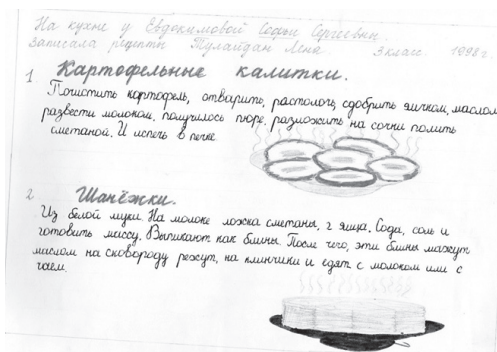 На кухне у Евдокимовой Софьи Сергеевны.
Записала рецепты Тулайдан Лена. 3 класс 1998 г.
1 Картофельные калитки.
Почистить картофель, отварить, растолочь, сдобрить яичком, маслом
развести молоком, получилось пюре, разложить на сочни полить
сметаной. И испечь в печке
2 Шанёжки.
Из белой муки. На молоке ложка сметаны, 2 яйца. Сода, соль и
готовить массу. Выпикают как блины. После чего, эти блины мажут
маслом на сковороду режут, на клинчики и едят с молоком или с
чаем.